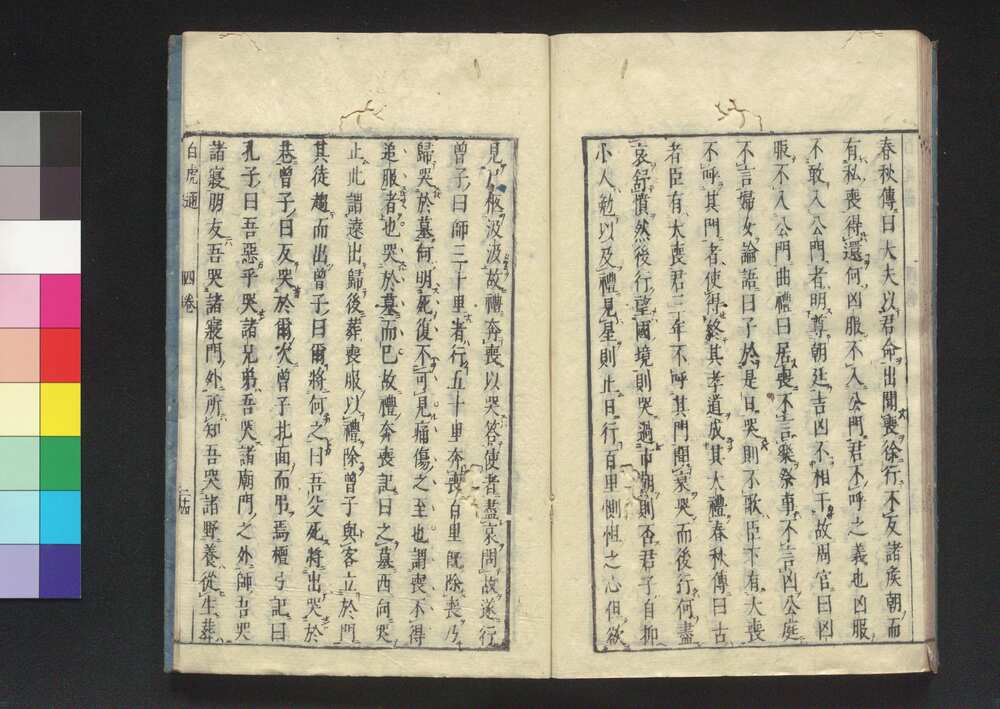 春秋傳曰大夫以君命出聞喪徐行不反諸侯朝而
有私喪得還何凶服不入公門君不呼之義也凶服
不敢入公門者明尊朝廷吉凶不相干故周官曰凶
服不入公門曲禮曰居喪不言樂祭事不言凶公庭
不言婦女論語曰子於是日哭則不歌臣下有大喪
不呼其門者使得終其孝道成其大禮春秋傳曰古
者臣有大喪君三年不呼其門聞哀哭而後行何盡
哀舒憤然後行望國境則哭過市朝則否君子自抑
小人勉以及禮見星則止日行百里惻怛之心但欲
見尸柩汲汲故禮奔喪以哭答使者盡哀問故遂行
曾子曰師三十里者行五十里奔喪百里既除喪乃
歸哭於墓何明死復不可見痛傷之至也謂喪不得
追服者也哭於墓而已故禮奔喪記曰之墓西向哭
止此謂遠出歸後葬喪服以禮除曾子與客立於門
其徒趨而出曾子曰爾將何之曰吾父死將出哭於
巷曾子曰反哭於爾次曾子北面而弔焉檀弓記曰
孔子曰吾惡乎哭諸兄弟吾哭諸廟門之外師吾哭
諸寢朋友吾哭諸寢門外所知吾哭諸野養從生葬
白虎通 四卷 二十四